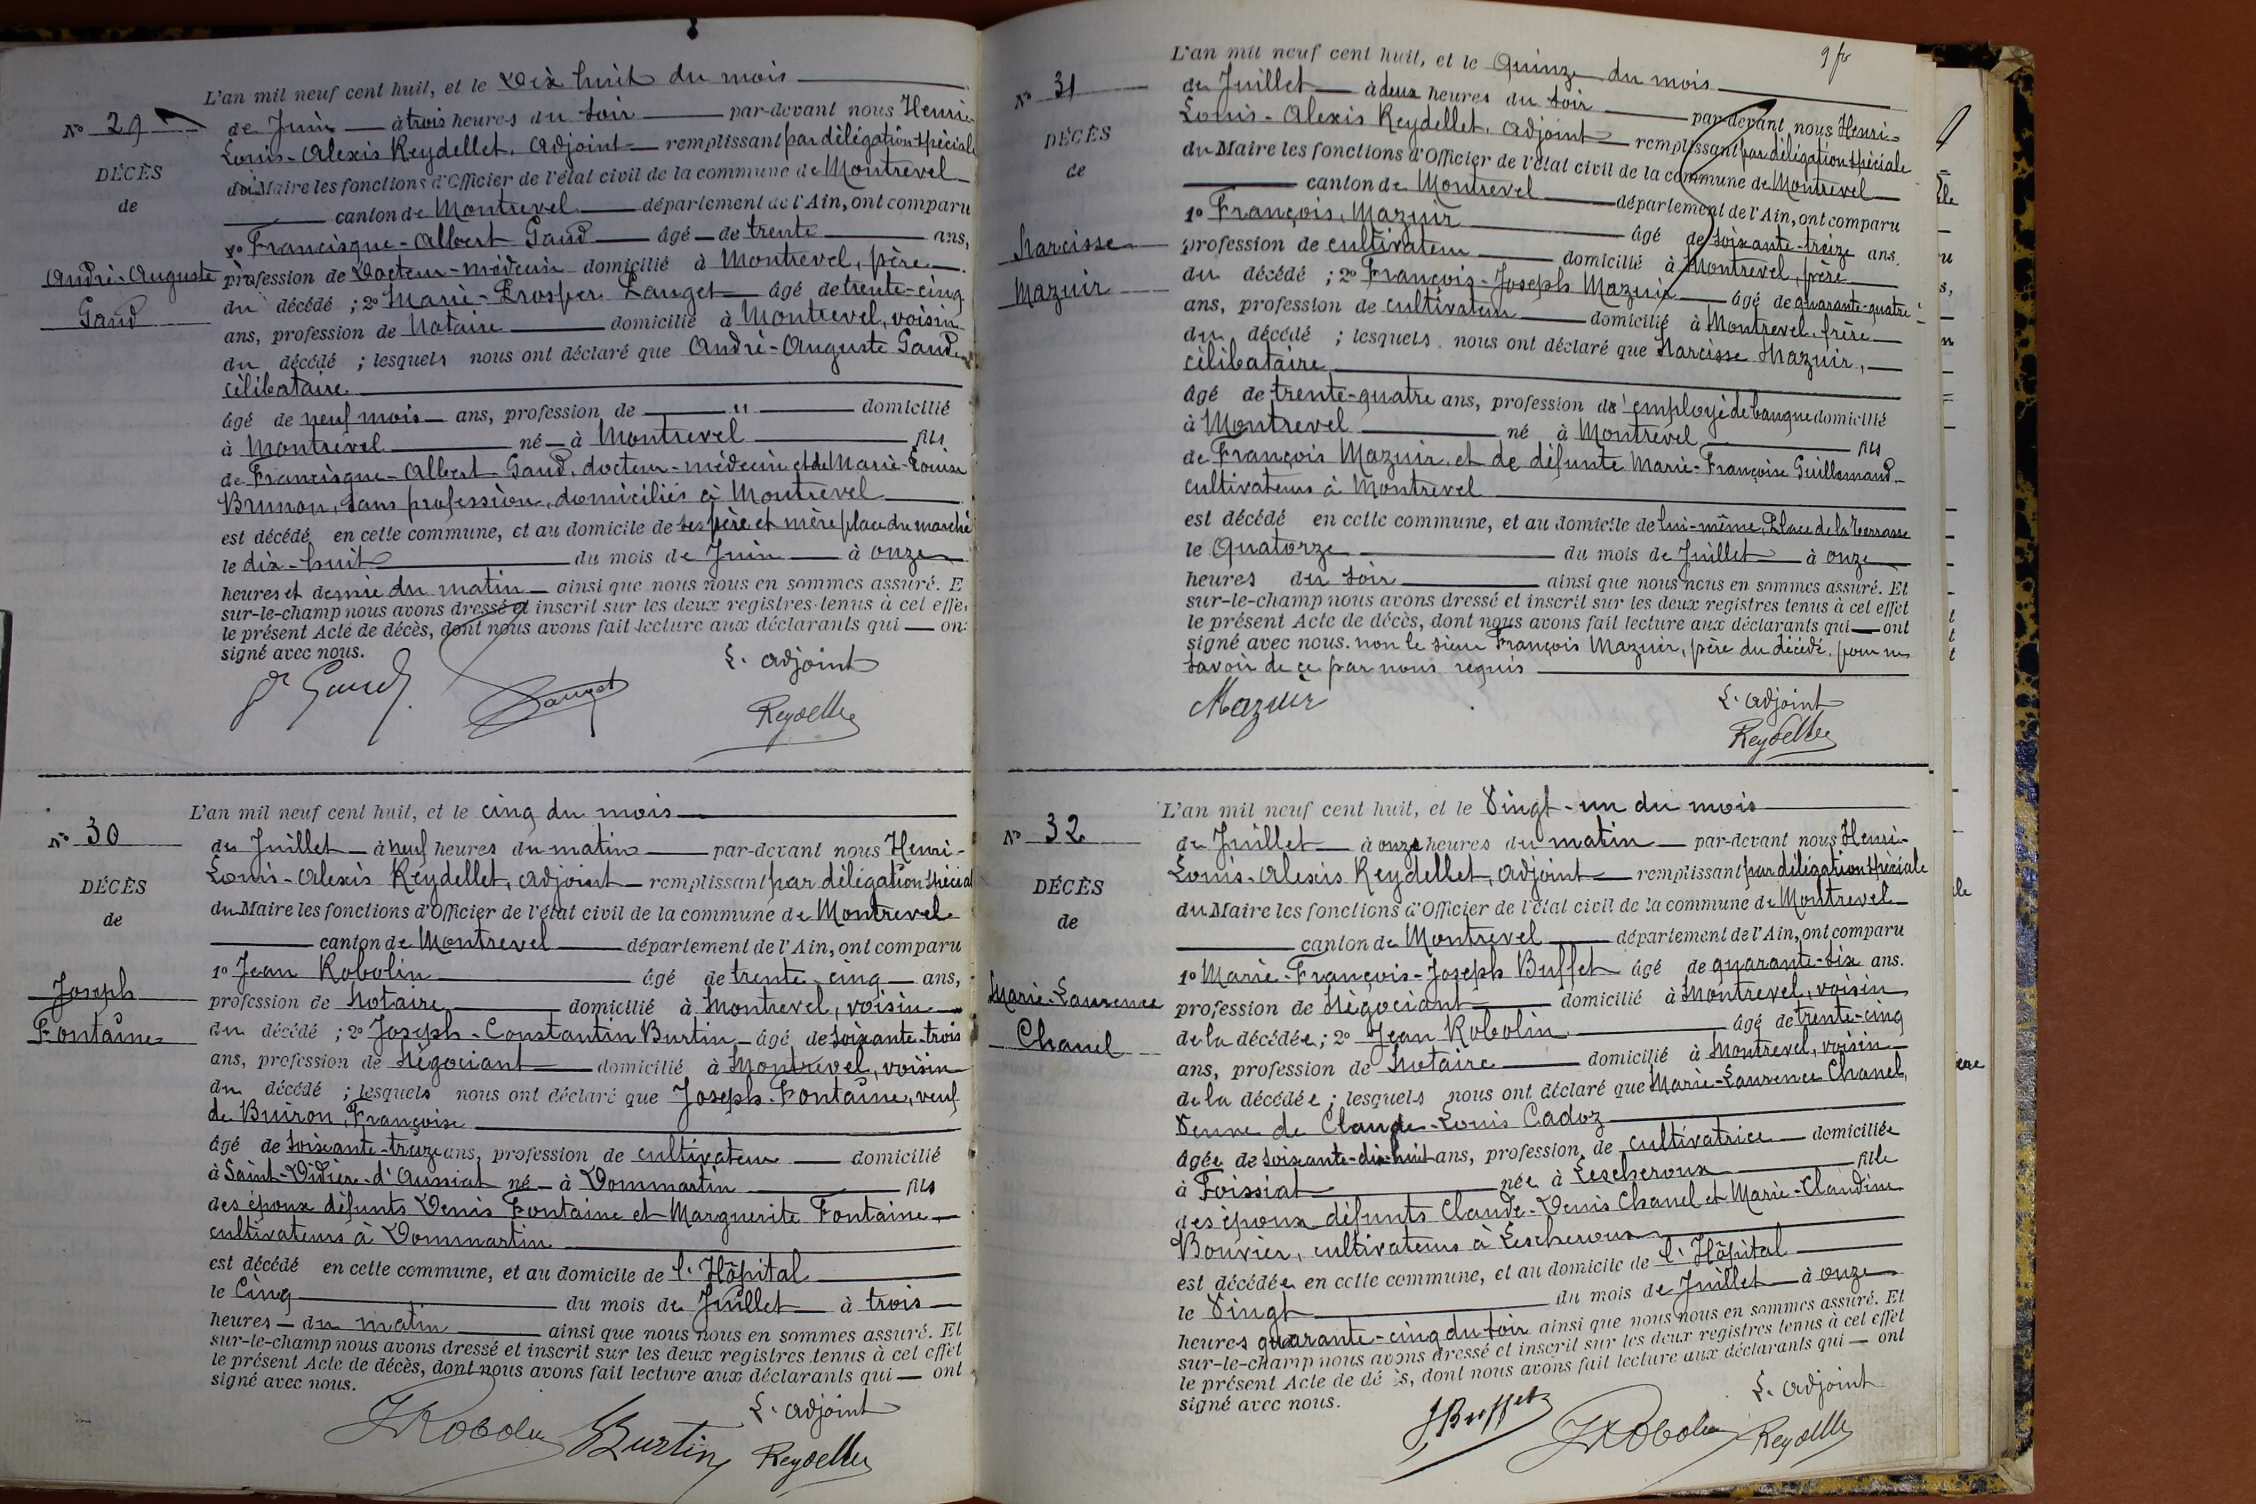 L'an mil neuf cent huit, et le Dix huit du mois
N° 29
de Juin à trois heures du soir par-devant nous Henri-
Louis-Alexis Reydellet, adjoint remplissant par délégation spéciale
DÉCÈS
du Maire les fonctions d'Officier de l'état civil de la commune de Montrevel
de
canton de Montrevel département de l'Ain, ont comparu
1° Francisque-Albert Gaud âgé de trente ans,
André-Auguste
Gaud
profession de Docteur-médecin domicilié à Montrevel, père
du décédé ; 2° Marie-Prosper Lauget âgé de trente-cinq
ans, profession de Notaire domicilié à Montrevel, voisin
du décédé ; lesquels nous ont déclaré que André-Auguste Gaud,
célibataire
âgé de neuf mois ans, profession de " domicilié
à Montrevel né à Montrevel fils
de Francisque-Albert Gaud, docteur-médecin et de Marie-Louise
Brunon, sans profession, domiciliés à Montrevel
est décédé en cette commune, et au domicile de ses père et mère place du marché
le dix-huit du mois de Juin à onze
heures et demie du matin ainsi que nous nous en sommes assuré. E
sur-le-champ nous avons dressé et inscrit sur les deux registres tenus à cet effe
le présent Acte de décès, dont nous avons fait lecture aux déclarants qui on
signé avec nous.
L'adjoint
Dr Gaud
Lauget
Reydellet
L'an mil neuf cent huit, et le cinq du mois
N° 30
de Juillet à neuf heures du matin par-devant nous Henri-
Louis-Alexis Reydellet, adjoint remplissant par délégation spécial
DÉCÈS
du Maire les fonctions d'Officier de l'état civil de la commune de Montrevel
de
canton de Montrevel département de l'Ain, ont comparu
1° Jean Robolin âgé de trente cinq ans,
Joseph
Fontaine
profession de Notaire domicilié à Montrevel, voisin
du décédé ; 2° Joseph-Constantin Burtin âgé de soixante-trois
ans, profession de Négociant domicilié à Montrevel, voisin
du décédé ; lesquels nous ont déclaré que Joseph Fontaine, veuf
de Buiron, Françoise
âgé de soixante-treize ans, profession de cultivateur domicilié
à Saint-Didier-d'Aussiat né à Dommartin fils
des époux défunts Denis Fontaine et Marguerite Fontaine
cultivateurs à Dommartin
est décédé en cette commune, et au domicile de l'Hôpital
le Cinq du mois de Juillet à trois
heures du matin ainsi que nous nous en sommes assuré. Et
sur-le-champ nous avons dressé et inscrit sur les deux registres tenus à cet effet
le présent Acte de décès, dont nous avons fait lecture aux déclarants qui ont
signé avec nous.
L'adjoint
J Robolin
Burtin
Reydellet
L'an mil neuf cent huit, et le Quinze du mois
N° 31
de Juillet à deux heures du soir par-devant nous Henri-
Louis-Alexis Reydellet, adjoint remplissant par délégation spéciale
DÉCÈS
du Maire les fonctions d'Officier de l'état civil de la commune de Montrevel
de
canton de Montrevel département de l'Ain, ont comparu
1° François Mazuir âgé de soixante-treize ans.
Narcisse
Mazuir
profession de cultivateur domicilié à Montrevel, père
du décédé ; 2° François-Joseph Mazuir âgé de quarante-quatre
ans, profession de cultivateur domicilié à Montrevel, frère
du décédé ; lesquels nous ont déclaré que Narcisse Mazuir,
célibataire
âgé de trente-quatre ans, profession d'employé de banque domicilié
à Montrevel né à Montrevel fils
de François Mazuir et de défunte Marie-Françoise Guillemaud
cultivateurs à Montrevel
est décédé en cette commune, et au domicile de lui-même, Place de la Terrasse
le Quatorze du mois de Juillet à onze
heures du soir ainsi que nous nous en sommes assuré. Et
sur-le-champ nous avons dressé et inscrit sur les deux registres tenus à cet effet
le présent Acte de décès, dont nous avons fait lecture aux déclarants qui ont
signé avec nous. non le sieur François Mazuir, père du décédé, pour ne
savoir de ce par nous requis
Mazuir
L'adjoint
Reydellet
L'an mil neuf cent huit, et le Vingt-un du mois
N° 32
de Juillet à onze heures du matin par-devant nous Henri-
Louis-Alexis Reydellet, adjoint remplissant par délégation spéciale
DÉCÈS
du Maire les fonctions d'Officier de l'état civil de la commune de Montrevel
de
canton de Montrevel département de l'Ain, ont comparu
1° Marie-François-Joseph Buffet âgé de quarante-six ans.
Marie-Laurence
Chanel
profession de Négociant domicilié à Montrevel, voisin
de la décédée ; 2° Jean Robolin âgé de trente-cinq
ans, profession de Notaire domicilié à Montrevel, voisin
de la décédée ; lesquels nous ont déclaré que Marie-Laurence Chanel,
Veuve de Claude-Louis Cadoz
âgée de soixante-dix-huit ans, profession de cultivatrice domiciliée
à Foissiat née à Lescheroux fille
des époux défunts Claude-Denis Chanel et Marie-Claudine
Bouvier, cultivateurs à Lescheroux
est décédée en cette commune, et au domicile de l'Hôpital
le Vingt du mois de Juillet à onze
heures quarante-cinq du soir ainsi que nous nous en sommes assuré. Et
sur-le-champ nous avons dressé et inscrit sur les deux registres tenus à cet effet
le présent Acte de décès, dont nous avons fait lecture aux déclarants qui ont
signé avec nous.
L'adjoint
J Buffet
J Robolin
Reydellet